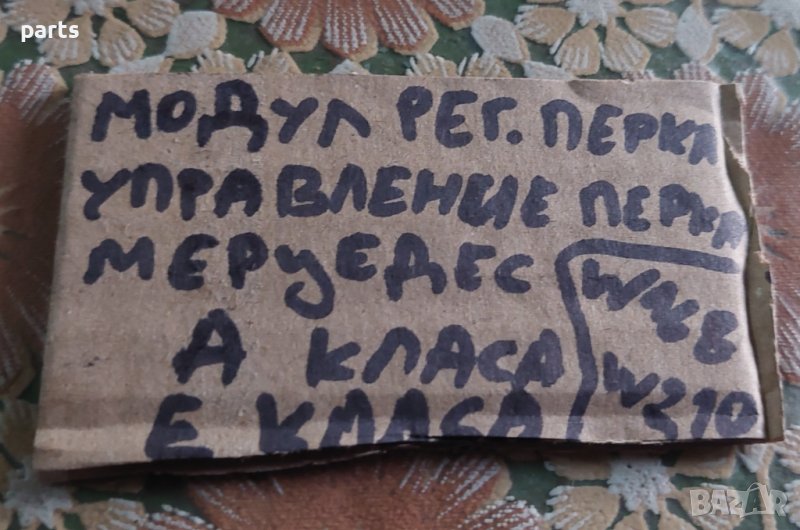 parts
МОДУЛ РЕГ. ПЕРКА
УПРАВЛЕНИЕ ПЕРКА
МЕРЦЕДЕС
А КЛАСА
Е КЛАСА
W168
W210
BAZAR